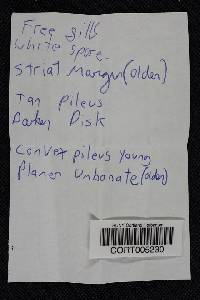 Free gills
white spore
Striat Margin (older)
Tan Pileus
Darker Disk
Convex pileus young
Planer Unbonate (older)
CORT009230